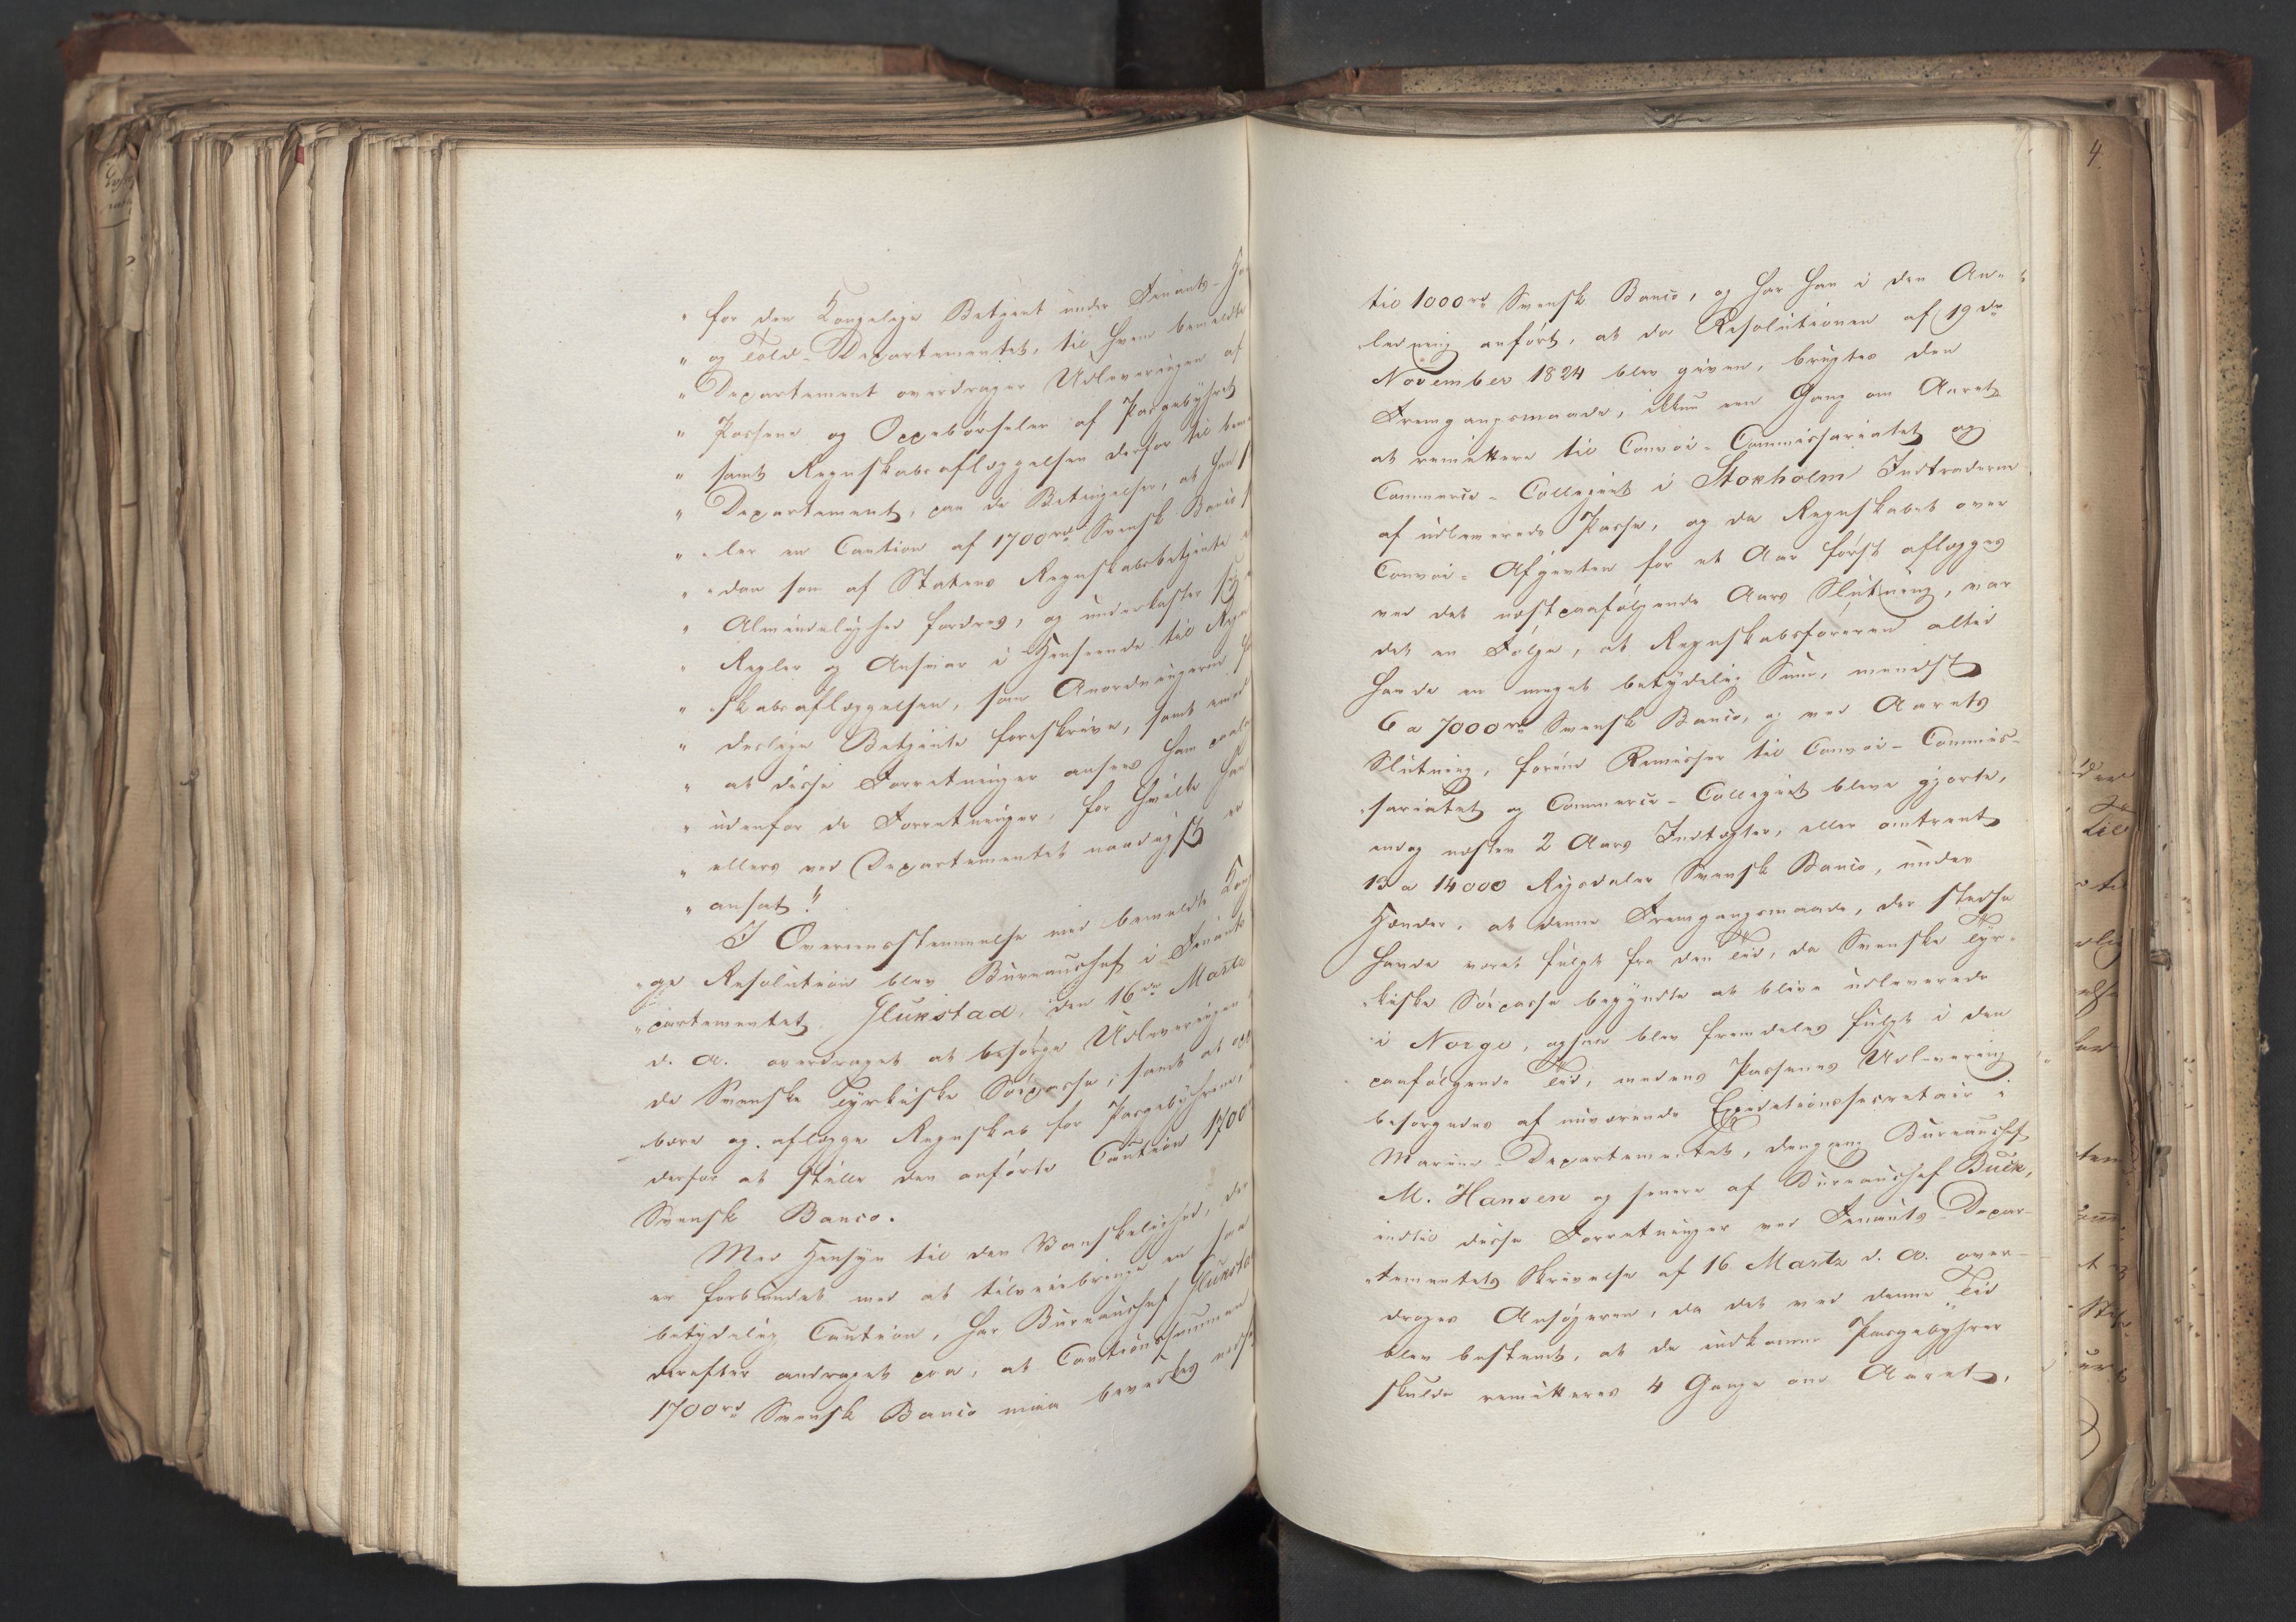 " for den Kongelige Betjent under Finants- Ha
" og Told-Departementet, til hvem bemeldte
" Departement overdrager Udleveringen af
" Passene og Oppebørselen af Pasgebyhret
" samt Regnskabsaflæggelsen derfor til bem
" Departement, paa de Betingelser, at han s
" -ler en Caution af 1700rd Svensk Banco s
" -dan som af Statens Regnskabsbetjente i
" Almindelighed fordres, og underkaster sig
" Regler og Ansvar i Henseende til Regn
" -skabsaflæggelsen, som Anordningerne f
" deslige Betjente foreskrive, samt imod
" at disse Forretninger ansees ham paala
" udenfor de Forretninger, for hvilke han
" ellers ved Departementet naadigst er
" ansat."
I Overeensstemmelse med bemeldte Kong
-ge Resolution blev Bureauchef i Finants
-partementet Glükstad, den 16de Martz
d. A. overdraget at besørge Udleveringen
de Svenske Tyrkiske Søepasse, samt at op
-bære og aflægge Regnskab for Pasgebyhrene,
derfor at stille den anførte Caution 1700
Svensk Banco.
Med Hensyn til den Vanskelighed, der
er forbundet med at tilveiebringe en saa
betydelig Caution, har Bureauchef Glüksta
derefter andraget paa, at Cautionssummen
1700rd Svensk Banco maa bevirkes ned-
til 1000rd Svensk Banco, og har han i den An-
-ledning anført, at da Resolutionen af 19de
November 1824 blev given, brugtes den
Fremgangsmaade, ikkun een Gang om Aaret
at remittere til Convoi-Commissariatet og
Commerce-Collegiet i Stokholm Indtraderne
af udleverede Passe, og da Regnskabet over
Convoi-Afgivten for et Aar først aflægges
ved det næstpaafølgende Aars Slutning, var
det en Følge, at Regnskabsføreren altid
havde en meget betydelig Sum, mindst
6 a 7000rd Svensk Banco, og ved Aarets
Slutning, forind Remisser til Convoi-Commis-
-sariatet og Commerce-Collegiet bleve gjorte,
endog næsten 2 Aars Indtægter, eller omtrent
13 a 14000 Rigsdaler Svensk Banco, under
Hænder, at denne Fremgangsmaade, der stedse
havde været fulgt fra den Tid, da Svenske Tyr-
-kiske Søepasse begyndte at blive udleverede
i Norge, ogsaa blev fremdeles fulgt i den
paafølgende Tid, medens Passenes Udlevering
besørgedes af nuværende Expeditionssecretair i
Marine-Departementet, dengang Bureauchef
M. Hansen og senere af Bureauchef Buck,
indtil disse Forretninger ved Finants-Depar-
-tementets Skrivelse af 16 Martz d. A. over-
droges Ansøgeren, da det ved denne Tid
blev bestemt, at de indkomne Pasgebyhrer
skulde remitteres 4 Gange om Aaret,
4